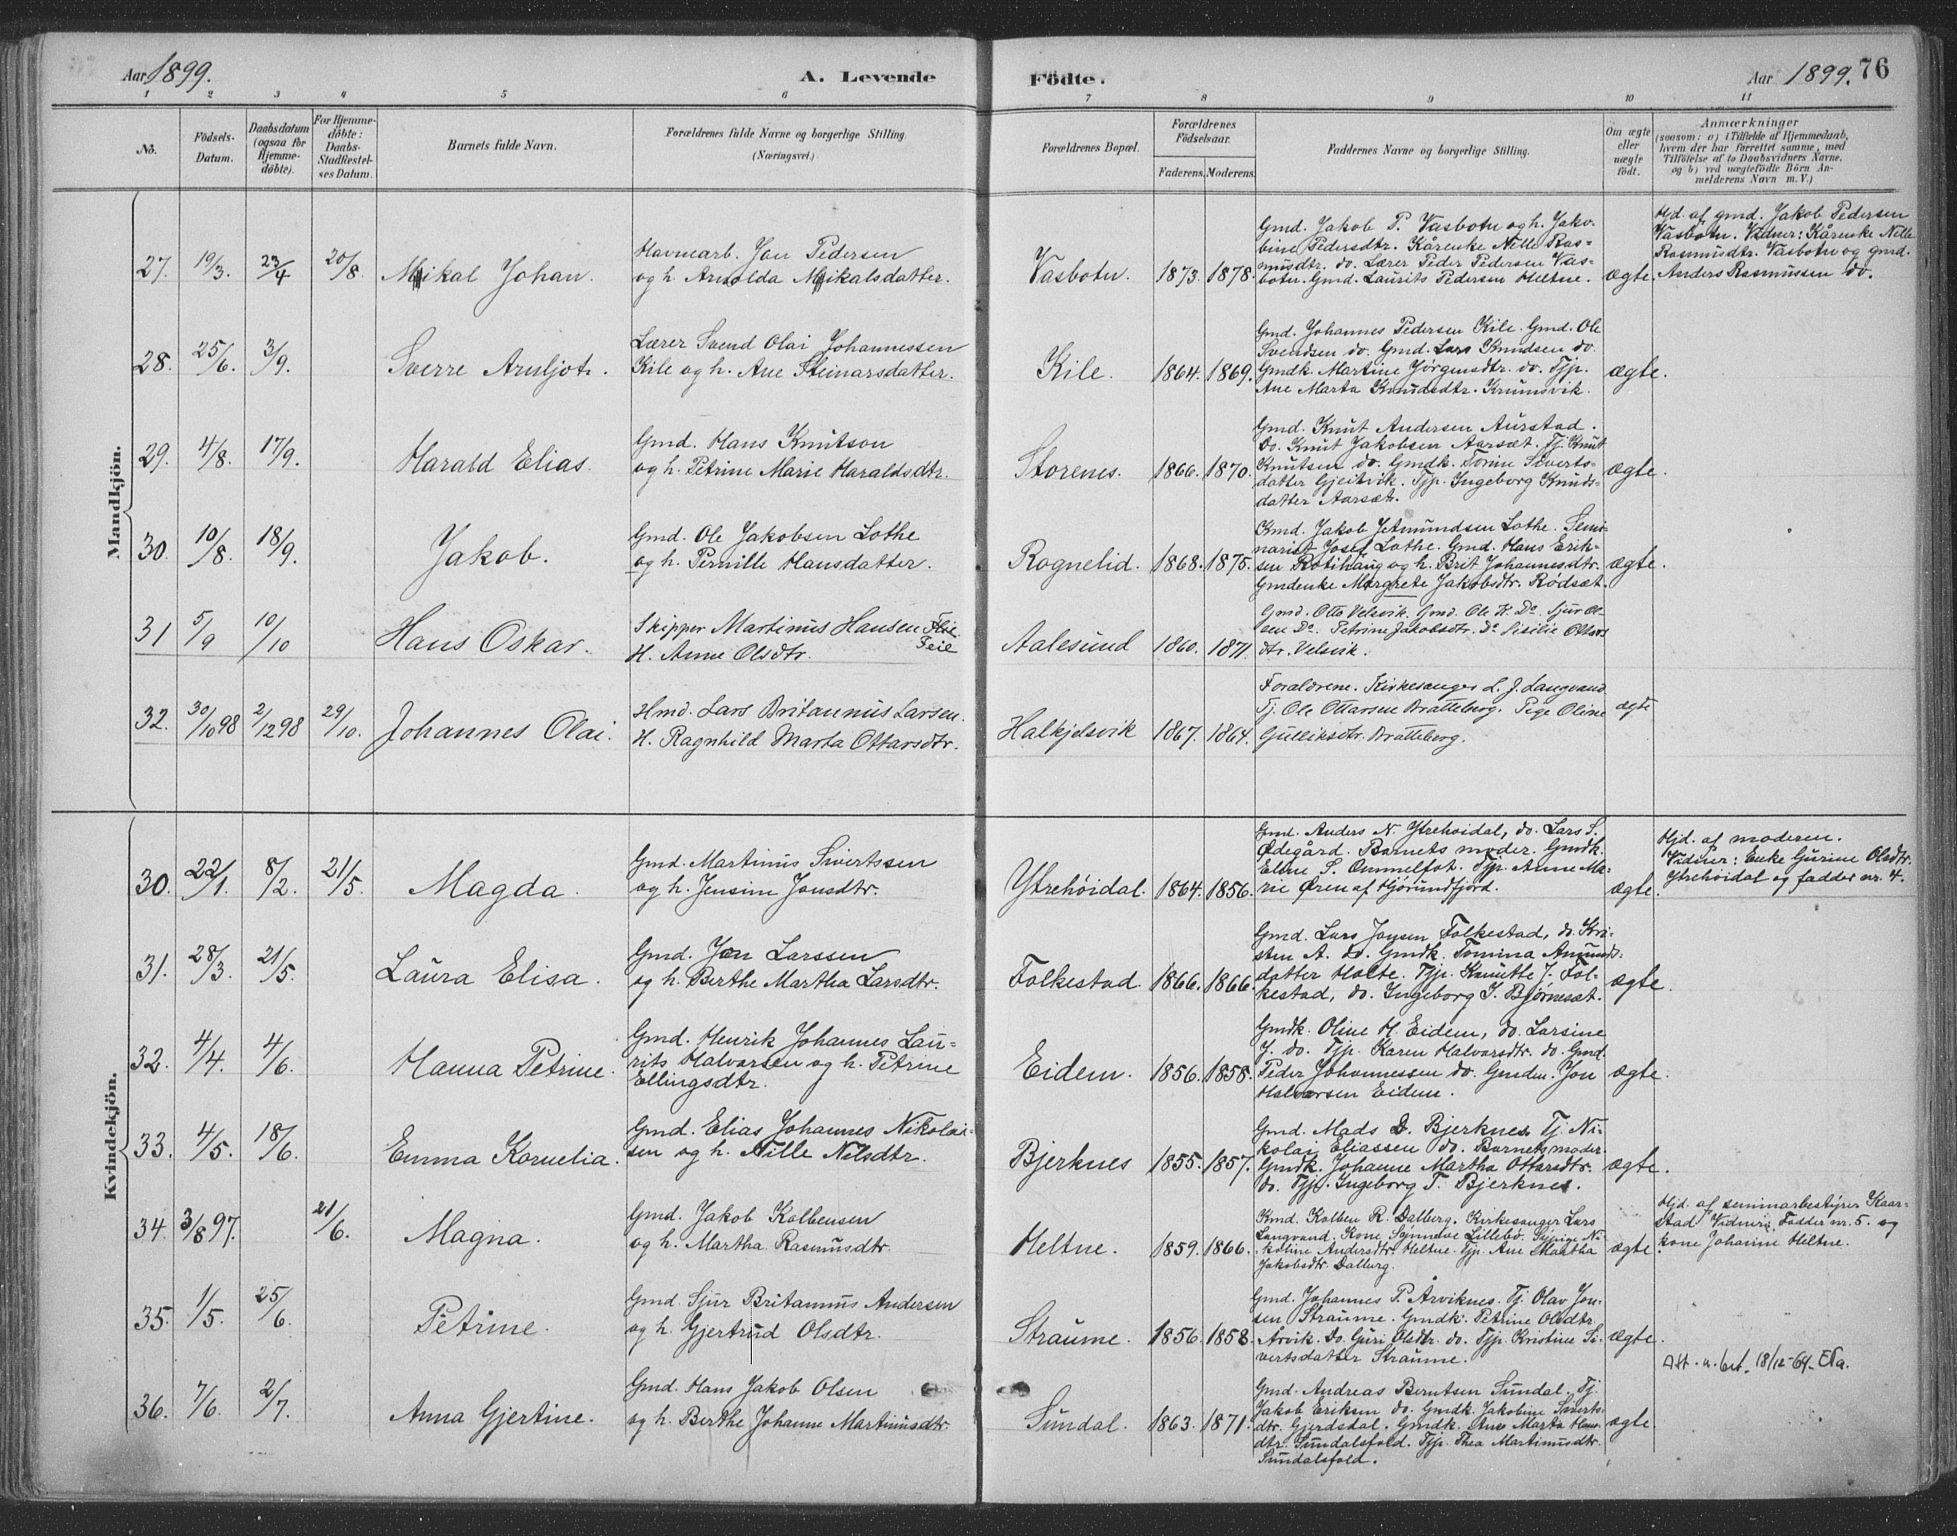 Aar 1899. A. Levende Födte. Aar 1899. 76
1 2 3 4 5 6 7 8 9 10 11
No. Födsels-Datum. Daabsdatum (ogsaa for Hjemme-döbte). For Hjemme-döbte: Daabs-Stadfæstel-ses Datum. Barnets fulde Navn. Forældrenes fulde Navne og borgerlige Stilling. (Næringsvei.) Forældrenes Bopæl. Forældrenes Födselsaar. Faderens. Moderens. Faddernes Navne og borgerlige Stilling. Om ægte eller uægte födt. Anmærkninger
(saasom: a) i Tilfælde af Hjemmedaab,
hvem der har forrettet samme, med
Tilföielse af to Daabsvidners Navne,
og b) ved uægtefödte Börn An-
melderens Navn m. V.)
Mandkjön.
27. 19/3. 23/4 20/8. Mikal Johan.
Havnearb. Jon Pedersen
og h. Arnolda Mikalsdatter.
Vasbotn. 1873. 1878.
Gmd. Jakob P. Vasbotn og h. Jako-
bine Pedersdtr. Kårenke Nille Ras-
musdtr. do. Lærer Peder Pedersen Vas-
botn. Gmd. Laurits Pedersen Heltne.
ægte.
Hjd. af gmd. Jakob Pedersen
Vasbotn. Vidner: Kårenke Nille
Rasmusdtr. Vasbotn og gmd.
Anders Rasmussen do.
28. 25/6. 3/9. Sverre Arnljot.
Lærer Svend Olai Johannessen
Kile og h. Ane Steinarsdatter.
Kile. 1864. 1869.
Gmd. Johannes Pedersen Kile. Gmd. Ole
Svendsen do. Gmd. Lars Knudsen do.
Gmdk. Martine Jörgensdtr. do. Tjp.
Ane Marta Knudsdtr. Krumsvik.
ægte.
29. 4/8. 17/9. Harald Elias.
Gmd. Hans Knutson
og h. Petrine Marie Haraldsdtr.
Storenes. 1866. 1870.
Gmd. Knut Andersen Aurstad.
Do. Knut Jakobsen Aarsæt. Tj. Knut
Knutsen do. Gmdk. Torine Siverts-
datter Gjeitvik. Tjp. Ingeborg Knuds-
datter Aarsæt.
ægte.
30. 10/8. 18/9. Jakob.
Gmd. Ole Jakobsen Lothe
og h. Pernille Hansdatter.
Rognelid. 1868. 1875.
Kmd. Jakob Jetmundsen Lothe. Semi-
narist Josef Lothe. Gmd. Hans Erik-
sen Rotihaug og h. Brit Johannesdtr.
Gmdenke Margrete Jakobsdtr. Rödsæt.
ægte.
31 5/9 10/10 Hans Oskar.
Skipper Martinus Hansen Feie
H. Anne Olsdtr.
Aalesund 1860. 1871.
Gmd. Otto Velsvik. Gmd. Ole H. Do. Sjur Ol-
sen Do. Petrine Jakobsdtr. Do Sisilie Ottars
dtr. Velsvik.
32. 30/10 98 2/12 98 29/10. Johannes Olai.
Hmd. Lars Britannus Larsen.
H. Ragnhild Marta Ottarsdtr.
Halkjelsvik 1867. 1864.
Forældrene. Kirkesanger L. J. Langvand
Tj. Ole Ottarsen Bratteberg. Pige Oline
Gulliksdtr. Bratteberg.
ægte
Kvindekjön.
30. 22/1. 8/2. 21/5. Magda.
Gmd. Martinus Sivertssen
og h. Jensine Jonsdtr.
Ytrehöidal. 1864. 1856.
Gmd. Anders N. Ytrehöidal, do. Lars S.
Ødegård. Barnets moder. Gmdk.
Eline S. Ommelfot. Tjp. Anne Ma-
rie Øren af Hjörundfjörd.
ægte.
Hjd. af moderen.
Vidner: Enke Gurine Olsdtr.
Ytrehöidal og fadder nr. 4.
31. 28/3. 21/5. Laura Elisa.
Gmd. Jon Larssen
og h. Berthe Martha Larsdtr.
Folkestad. 1866. 1866.
Gmd. Lars Jonsen Folkestad, do. Kri-
sten A. do. Gmdk. Tomina Amunds-
datter Holte. Tjp. Knutte J. Fol-
kestad, do. Ingeborg J. Bjørnesæt.
ægte.
32. 4/4. 4/6. Hanna Petrine.
Gmd. Henrik Johannes Lau-
rits Halvorsen og h. Petrine
Ellingsdtr.
Eidem. 1856. 1858.
Gmdk. Oline H. Eidem, do. Larsine
J. do. Tjp. Karen Halvorsdtr. do. Gmd.
Peder Johannessen do. Gmden. Jon
Halvorsen Eidem.
ægte.
33. 4/5. 18/6. Emma Kornelia.
Gmd. Elias Johannes Nikolai-
sen og h. Nille Nilsdtr.
Bjerknes 1855. 1857.
Gmd. Mads D. Bjerknes. Tj. Ni-
kolai Eliassen do. Barnets moder.
Gmdk. Johanne Martha Ottarsdtr.
do. Tjp. Ingeborg T. Bjerknes.
ægte.
34. 3/8 97. 21/6. Magna.
Gmd. Jakob Kolbensen
og h. Martha Rasmusdtr.
Heltne. 1859. 1866.
Kmd. Kolben R. Dalberg. Kirkesanger Lars
Langvand. Kone Synneve Lillebø. Sypige Ni-
koline Andersdtr. Heltne. Tjp. Ane Martha
Jakobsdtr. Dalberg.
ægte.
Hjd. af seminarbestyrer Kaar-
stad. Vidner: Fadder nr. 5. og
kone Johanne Heltne.
35. 1/5. 25/6. Petrine.
Gmd. Sjur Britannus Andersen
og h. Gjertrud Olsdtr.
Straume. 1856. 1858.
Gmd. Johannes P. Årviknes. Tj. Olav Jon-
sen Straume. Gmdk. Petrine Olsdtr.
Årvik. Do. Guri Olsdtr. do. Tjp. Kristine Si-
vertsdatter Straume.
ægte.
Att. u. bet. 18/12-64.
36. 7/6. 2/7. Anna Gjertine.
Gmd. Hans Jakob Olsen
og h. Berthe Johanne Martinusdtr.
Sundal. 1863. 1871.
Gmd. Andreas Berntsen Sundal. Tj.
Jakob Eriksen do. Gmdk. Jakobine Siverts-
dtr. Gjerdsdal. Gmdk. Ane Marta Hans-
dtr. Sundalsfold. Tjp. Thea Martinusdtr.
Sundalsfold.
ægte.